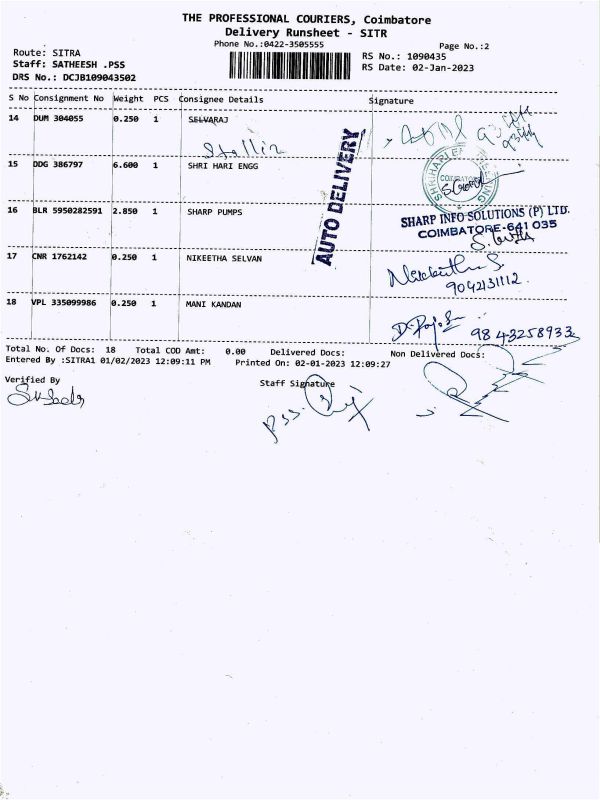 THE PROFESSIONAL COURIERS, Coimbatore
Delivery Runsheet - SITR
Phone No.:0422-3505555
Page No.:2
Route: SITRA
RS No.: 1090435
Staff: SATHEESH .PSS
RS Date: 02-Jan-2023
DRS No.: DCJB109043502
S No Consignment No Weight PCS Consignee Details Signature
14 DUM 304055 0.250 1 SELVARAJ
Stallin
15 DDG 386797 6.600 1 SHRI HARI ENGG
AUTO DELIVERY
16 BLR 5950282591 2.850 1 SHARP PUMPS
SHARP INFO SOLUTIONS (P) LTD.
COIMBATORE-641 035
17 CNR 1762142 0.250 1 NIKEETHA SELVAN
Nikeetha S.
9042131112.
18 VPL 335099986 0.250 1 MANI KANDAN
9843258933
Total No. Of Docs: 18 Total COD Amt: 0.00 Delivered Docs: Non Delivered Docs:
Entered By :SITRA1 01/02/2023 12:09:11 PM Printed On: 02-01-2023 12:09:27
Verified By
Staff Signature
PSS.